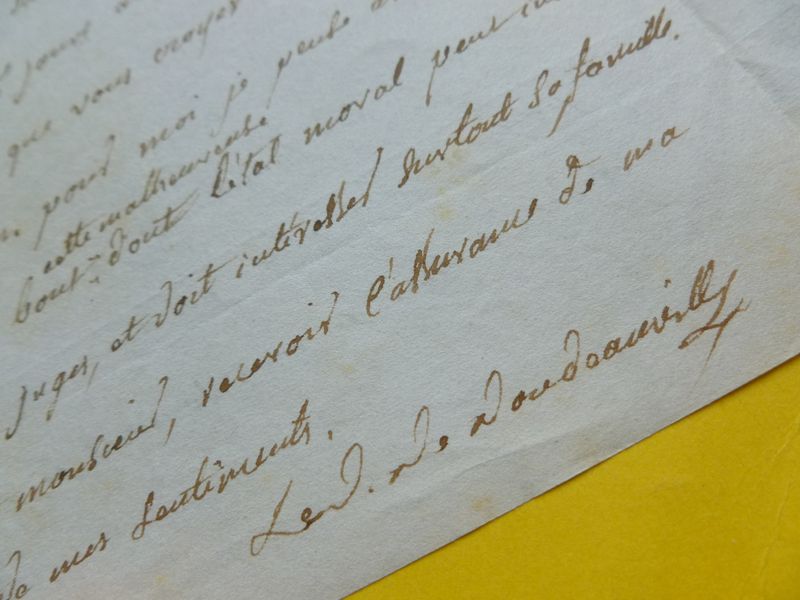 que vous croyez
pour moi je pense
cette malheureuse
bout. dont l'état moral peut
juger, et doit intéresser surtout sa famille.
monsieur, recevoir l'assurance de ma
de mes sentiments.
Le d. de doudeauville